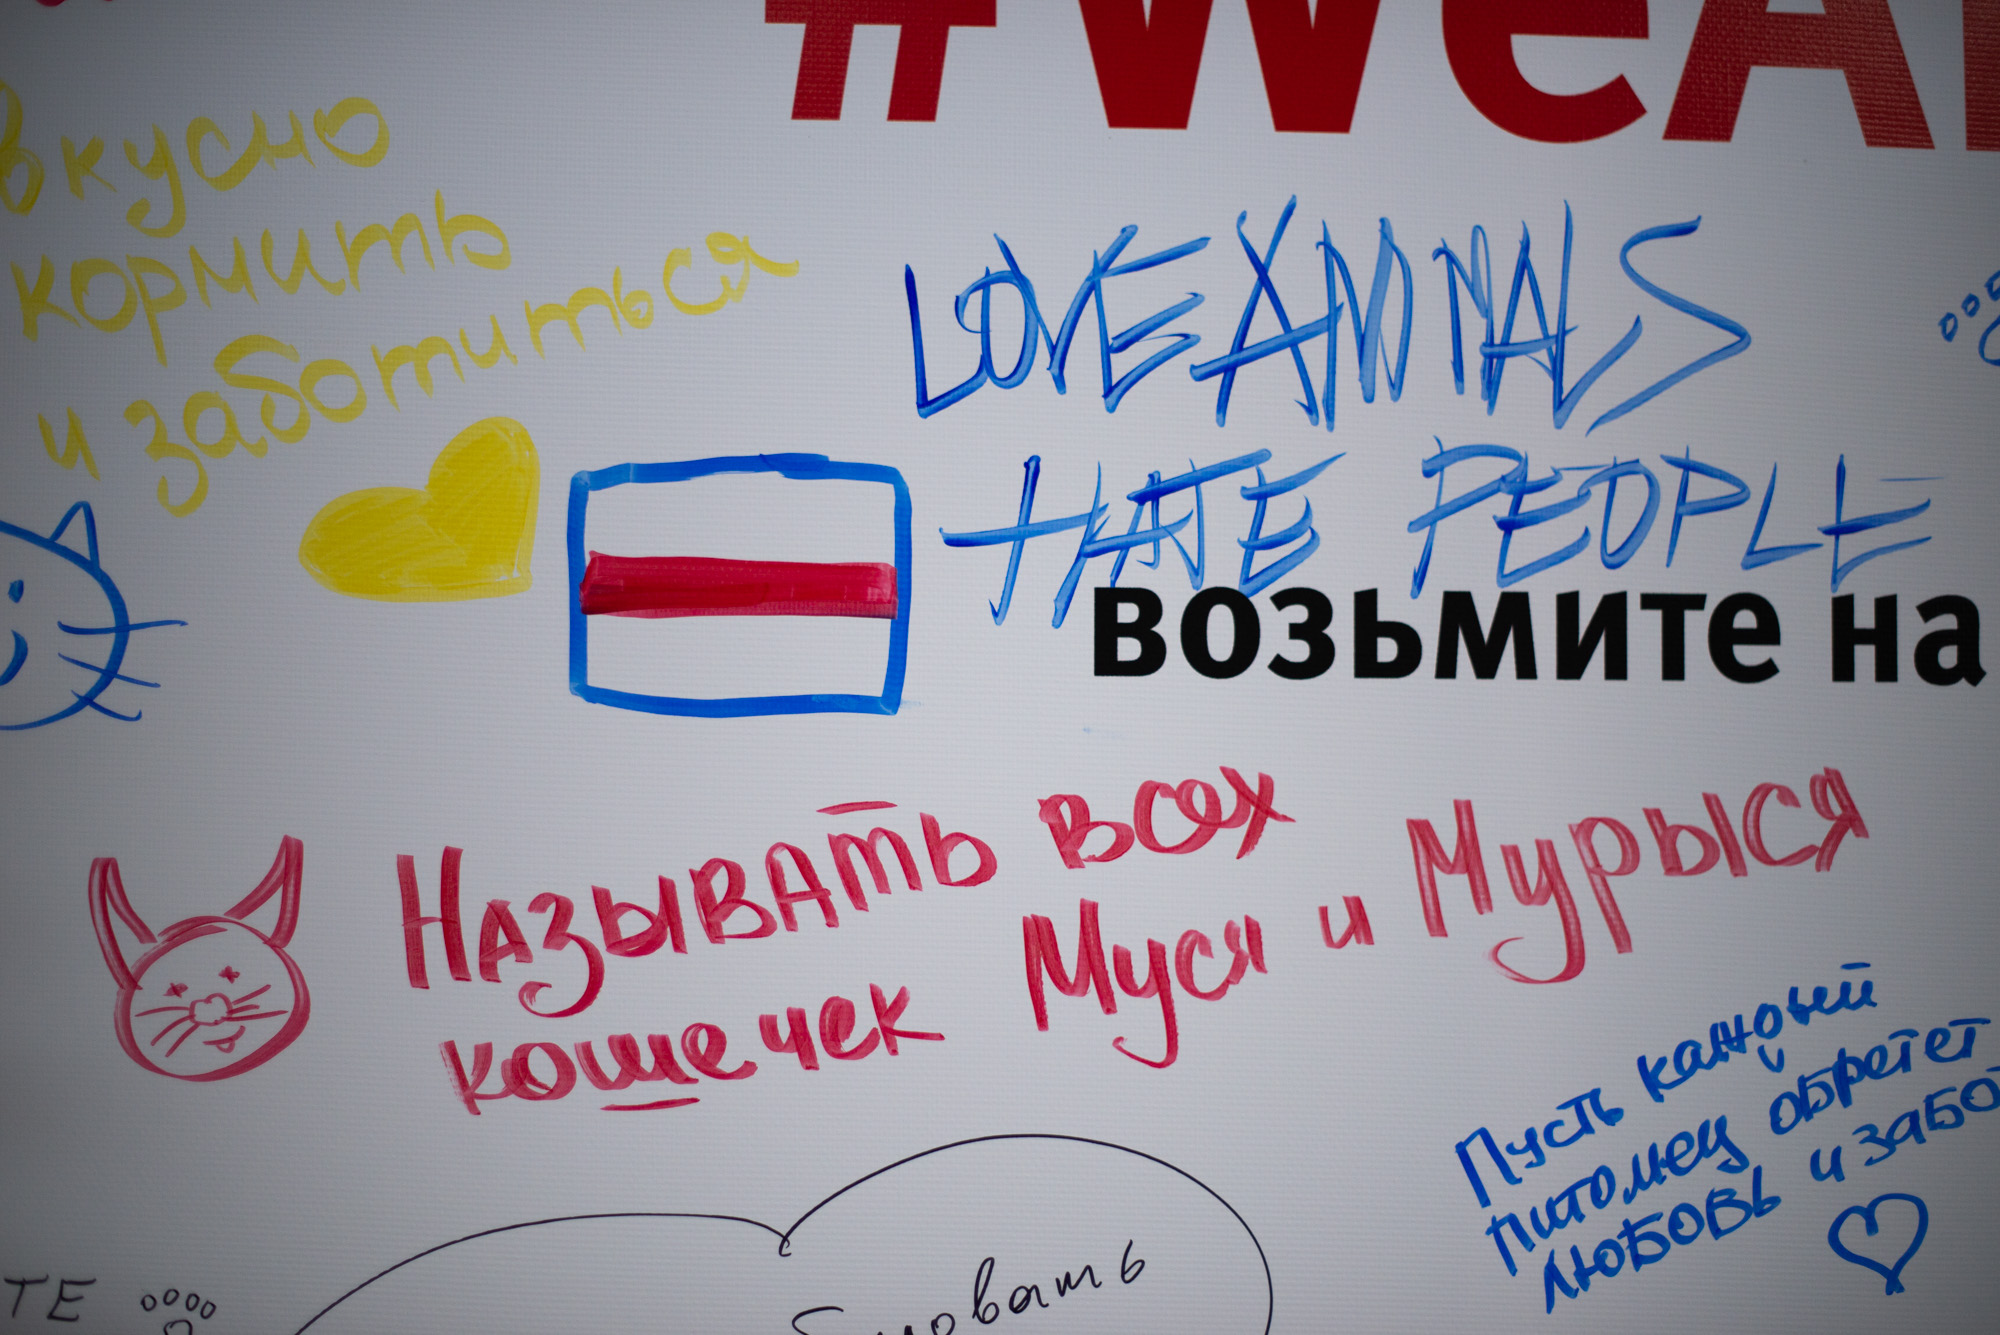 #WeA
вкусно
кормить
и заботиться
LOVE ANIMALS
HATE PEOPLE
возьмите на
Называть всех
кошечек Муся и Мурыся
Пусть каждый
питомец обретет
любовь и забо
ТЕ